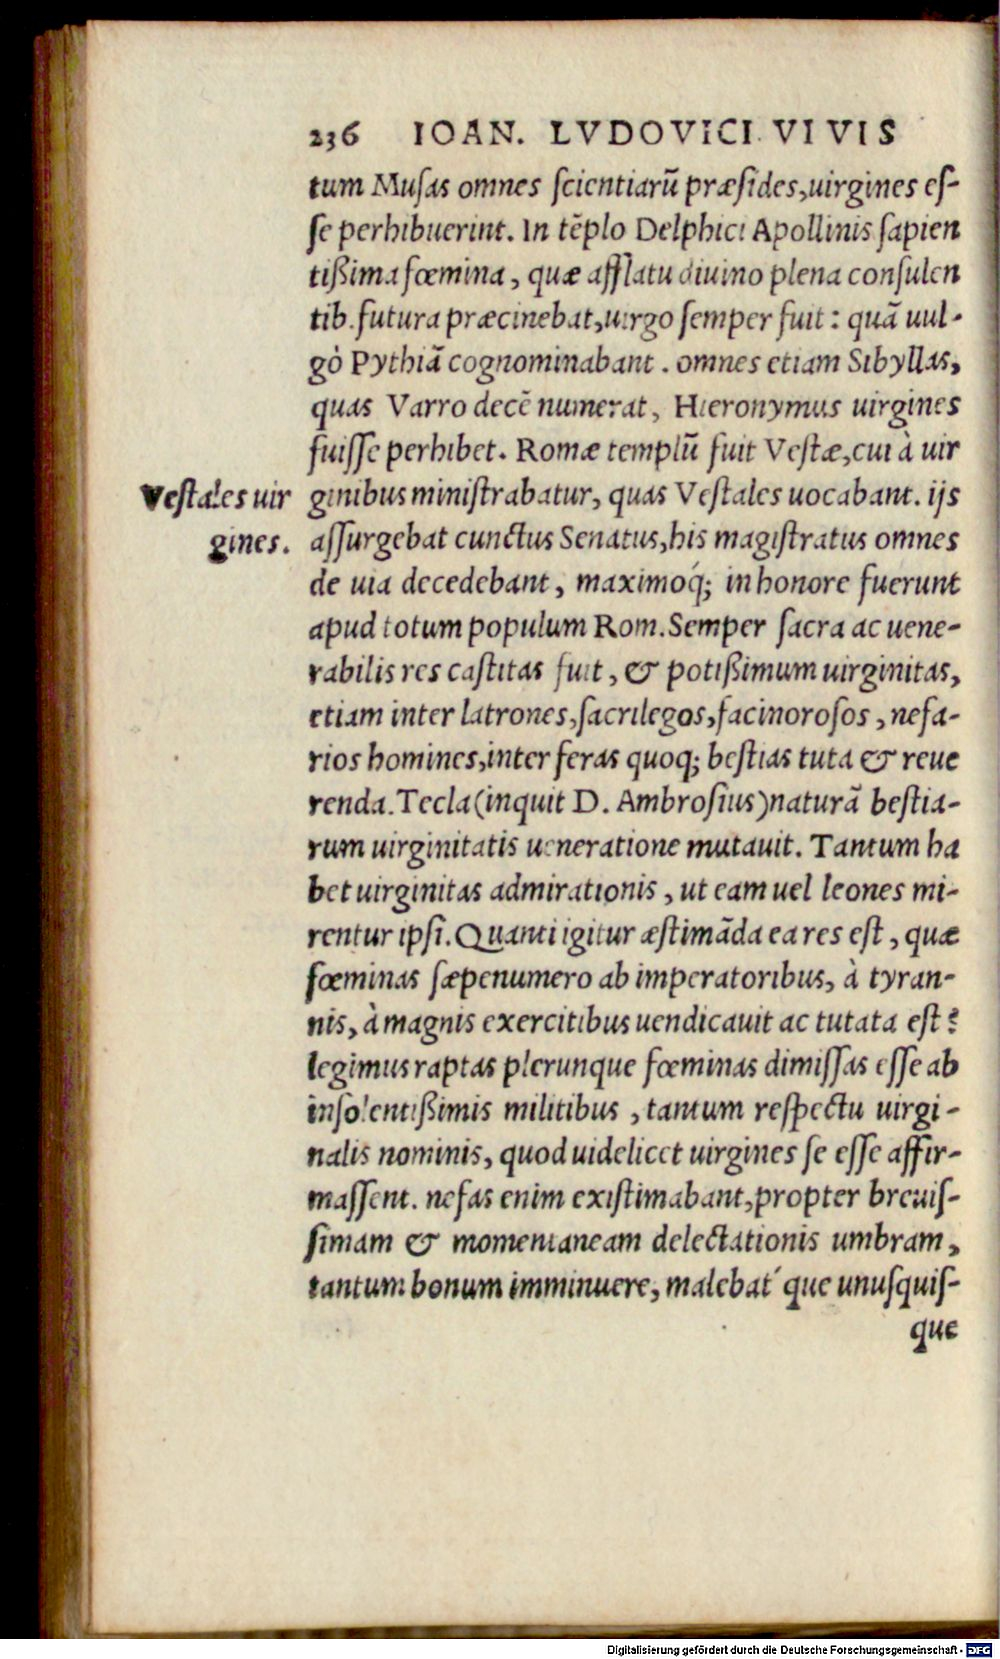 236 IOAN. LVDOVICI VIVIS
tum Muſas omnes ſcientiarũ præſides, uirgines eſ-
ſe perhibuerint. In tẽplo Delphici Apollinis ſapien
tißima fœmina, quæ afflatu diuino plena conſulen
tib. futura præcinebat, uirgo ſemper fuit: quã uul-
gò Pythiã cognominabant. omnes etiam Sibyllas,
quas Varro decẽ numerat, Hieronymus uirgines
fuiſſe perhibet. Romæ templũ fuit Veſtæ, cui à uir
Veſtales uir
gines.
ginibus miniſtrabatur, quas Veſtales uocabant. ijs
aſſurgebat cunctus Senatus, his magiſtratus omnes
de uia decedebant, maximoq́; in honore fuerunt
apud totum populum Rom. Semper ſacra ac uene-
rabilis res caſtitas fuit, & potißimum uirginitas,
etiam inter latrones, ſacrilegos, facinoroſos, nefa-
rios homines, inter feras quoq; beſtias tuta & reue
renda. Tecla (inquit D. Ambroſius) naturã beſtia-
rum uirginitatis ueneratione mutauit. Tantum ha
bet uirginitas admirationis, ut eam uel leones mi-
rentur ipſi. Quanti igitur æſtimãda ea res eſt, quæ
fœminas ſæpenumero ab imperatoribus, à tyran-
nis, à magnis exercitibus uendicauit ac tutata eſt?
legimus raptas plerunque fœminas dimiſſas eſſe ab
inſolentißimis militibus, tantum reſpectu uirgi-
nalis nominis, quod uidelicet uirgines ſe eſſe affir-
maſſent. nefas enim exiſtimabant, propter breuiſ-
ſimam & momentaneam delectationis umbram,
tantum bonum imminuere, malebat́ que unuſquiſ-
que
Digitalisierung gefördert durch die Deutsche Forschungsgemeinschaft - DFG